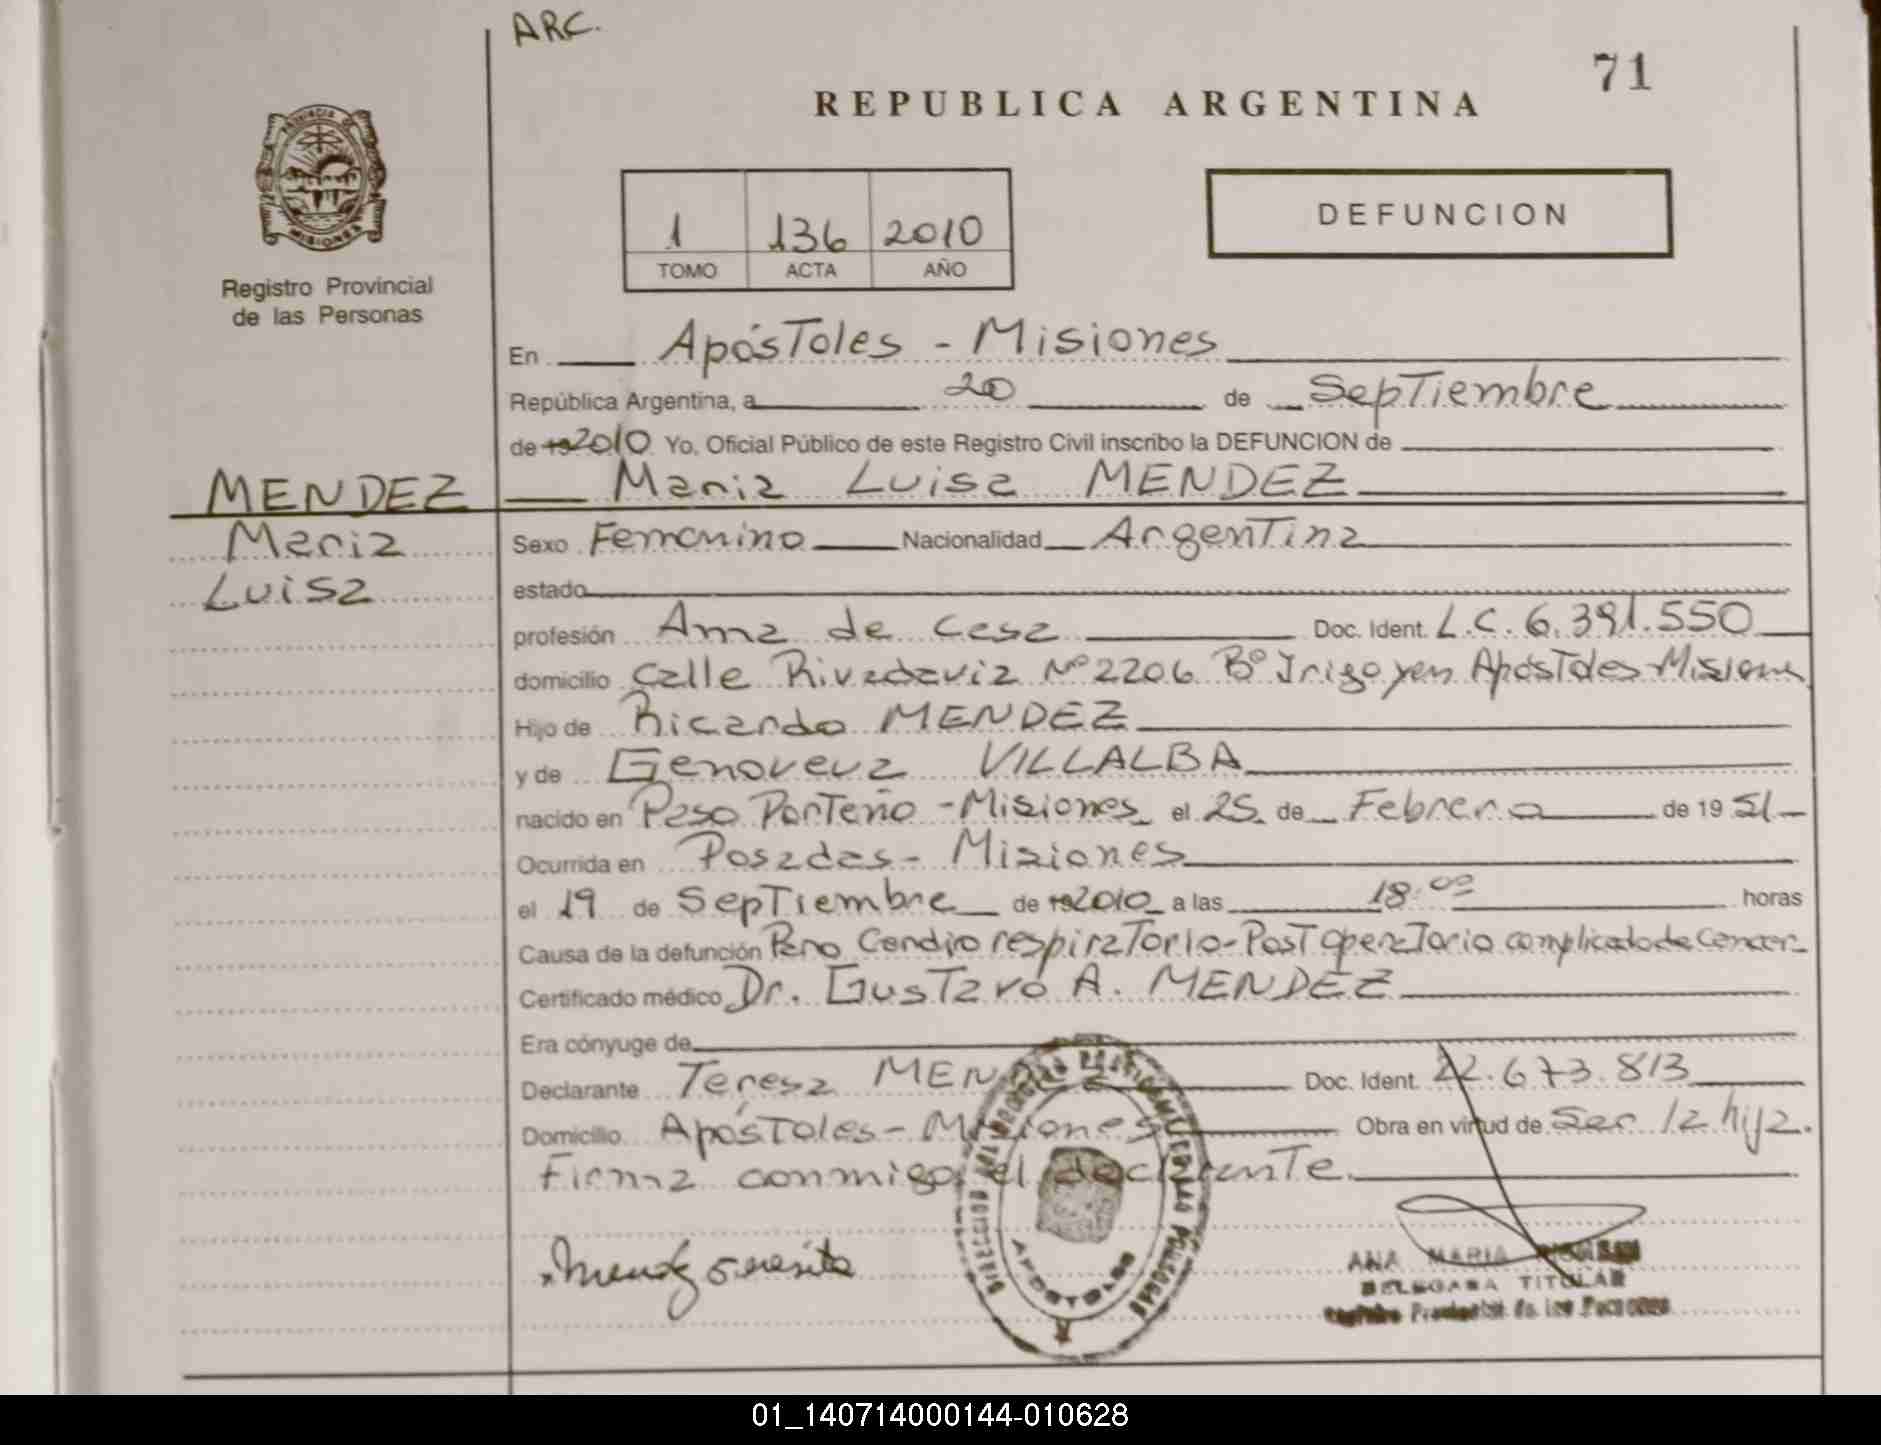 ARC.
71
REPUBLICA ARGENTINA
PROVINCIA DE
MISIONES
Registro Provincial
de las Personas
1 136 2010
TOMO ACTA AÑO
DEFUNCION
En Apóstoles - Misiones
República Argentina, a 20 de Septiembre
de 19 2010 Yo, Oficial Público de este Registro Civil inscribo la DEFUNCION de
MENDEZ
Maria Luisa MENDEZ
Maria
Luisa
Sexo Femenino Nacionalidad Argentina
estado
profesión Ama de Casa Doc. Ident. L.C. 6.391.550
domicilio Calle Rivadavia Nº 2206 Bº Irigoyen Apóstoles Misiones
Hijo de Ricardo MENDEZ
y de Genoveva VILLALBA
nacido en Paso Porteño - Misiones el 25 de Febrero de 19 51
Ocurrida en Posadas - Misiones
el 19 de Septiembre de 19 2010 a las 18:00 horas
Causa de la defunción Paro Cardio respiratorio - Post operatorio complicado de Cancer
Certificado médico Dr. Gustavo A. MENDEZ
Era cónyuge de
Declarante Teresa MENDEZ Doc. Ident. 22.673.813
Domicilio Apóstoles - Misiones Obra en virtud de Ser la hija.
Firma conmigo el declarante.
APOSTOLES
ANA MARIA
DELEGADA TITULAR
Registro Provincial de las Personas
01_140714000144-010628